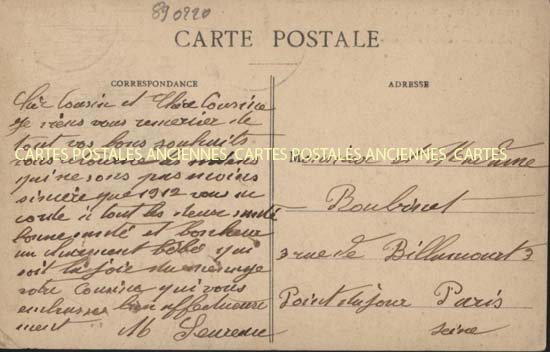 890220
CARTE POSTALE
CORRESPONDANCE
ADRESSE
Cher Cousin et Chère Cousine
Je viens vous remercier de
tout vos bons souhaits
CARTES POSTALES ANCIENNES CARTES POSTALES ANCIENNES CARTES
qui ne sons pas moins
sincère que 1912 vous
corde à tout les deux santé
bonne santé et bonheur
un charment bébé qui
soit la joie du ménage
votre Cousine qui vous
embrasse bien affectueuse
ment M
Monsieur et Mme
Boubinet
3 rue de Billancourt 3
Point du jour Paris
Seine